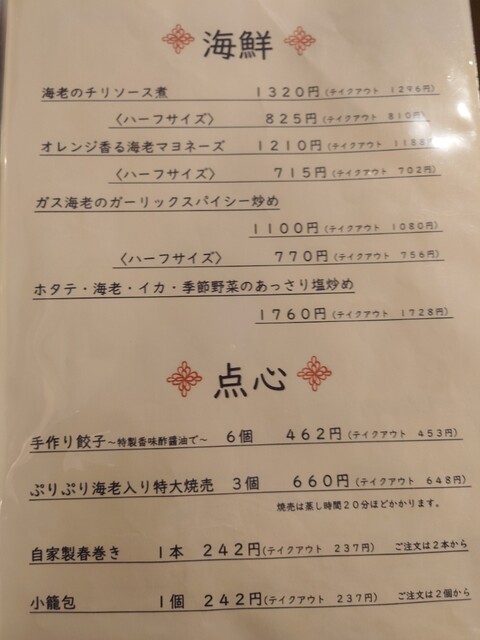 海鮮
海老のチリソース煮 1320円(テイクアウト 1296円)
〈ハーフサイズ〉 825円(テイクアウト 810円)
オレンジ香る海老マヨネーズ 1210円(テイクアウト 1188円)
〈ハーフサイズ〉 715円(テイクアウト 702円)
ガス海老のガーリックスパイシー炒め
1100円(テイクアウト 1080円)
〈ハーフサイズ〉 770円(テイクアウト 756円)
ホタテ・海老・イカ・季節野菜のあっさり塩炒め
1760円(テイクアウト 1728円)
点心
手作り餃子~特製香味酢醤油で~ 6個 462円(テイクアウト 453円)
ぷりぷり海老入り特大焼売 3個 660円(テイクアウト 648円)
焼売は蒸し時間20分ほどかかります。
自家製春巻き 1本 242円(テイクアウト 237円) ご注文は2本から
小籠包 1個 242円(テイクアウト 237円) ご注文は2個から